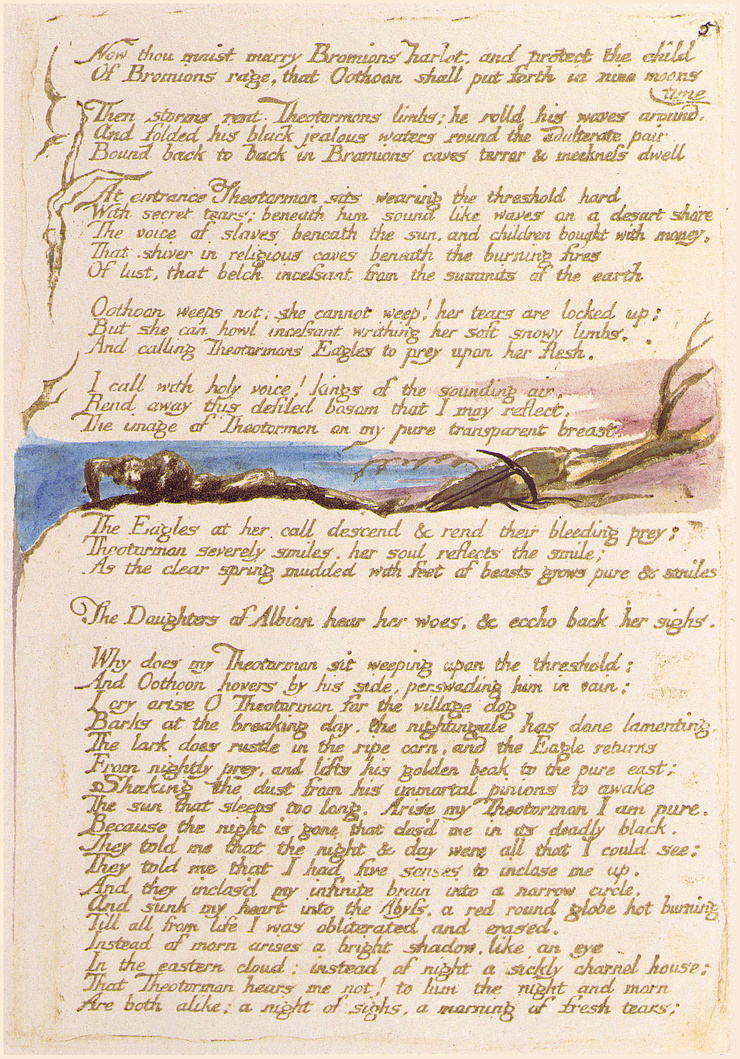 5
Now thou maist marry Bromions harlot, and protect the child
Of Bromions rage, that Oothoon shall put forth in nine moons
time
Then storms rent Theotormons limbs; he rolld his waves around.
And folded his black jealous waters round the adulterate pair
Bound back to back in Bromions caves terror & meekness dwell
At entrance Theotormon sits wearing the threshold hard
With secret tears; beneath him sound like waves on a desart shore
The voice of slaves beneath the sun, and children bought with money.
That shiver in religious caves beneath the burning fires
Of lust, that belch incessant from the summits of the earth
Oothoon weeps not: she cannot weep! her tears are locked up;
But she can howl incessant writhing her soft snowy limbs.
And calling Theotormons Eagles to prey upon her flesh.
I call with holy voice! kings of the sounding air,
Rend away this defiled bosom that I may reflect.
The image of Theotormon on my pure transparent breast.
The Eagles at her call descend & rend their bleeding prey;
Theotormon severely smiles. her soul reflects the smile;
As the clear spring mudded with feet of beasts grows pure & smiles
The Daughters of Albion hear her woes, & eccho back her sighs.
Why does my Theotormon sit weeping upon the threshold;
And Oothoon hovers by his side, perswading him in vain:
I cry arise O Theotormon for the village dog
Barks at the breaking day. the nightingale has done lamenting.
The lark does rustle in the ripe corn, and the Eagle returns
From nightly prey, and lifts his golden beak to the pure east;
Shaking the dust from his immortal pinions to awake
The sun that sleeps too long. Arise my Theotormon I am pure.
Because the night is gone that clos'd me in its deadly black.
They told me that the night & day were all that I could see;
They told me that I had five senses to inclose me up.
And they inclos'd my infinite brain into a narrow circle.
And sunk my heart into the Abyss, a red round globe hot burning
Till all from life I was obliterated and erased.
Instead of morn arises a bright shadow, like an eye
In the eastern cloud: instead of night a sickly charnel house;
That Theotormon hears me not! to him the night and morn
Are both alike: a night of sighs, a morning of fresh tears;